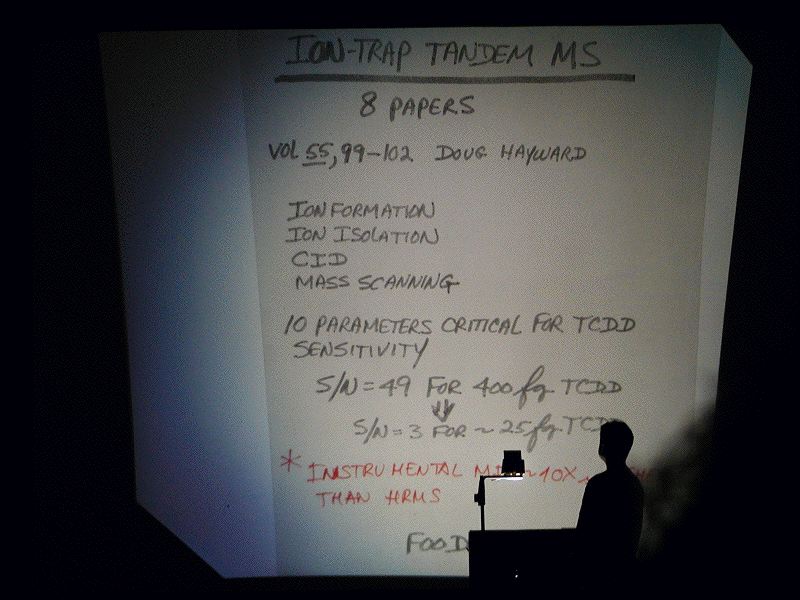 ION-TRAP TANDEM MS
8 PAPERS
VOL 55, 99-102 DOUG HAYWARD
ION FORMATION
ION ISOLATION
CID
MASS SCANNING
10 PARAMETERS CRITICAL FOR TCDD
SENSITIVITY
S/N = 49 FOR 400 fg TCDD
⇓
S/N = 3 FOR ~ 25 fg TCDD
* INSTRUMENTAL ~10X
THAN HRMS
FOOD